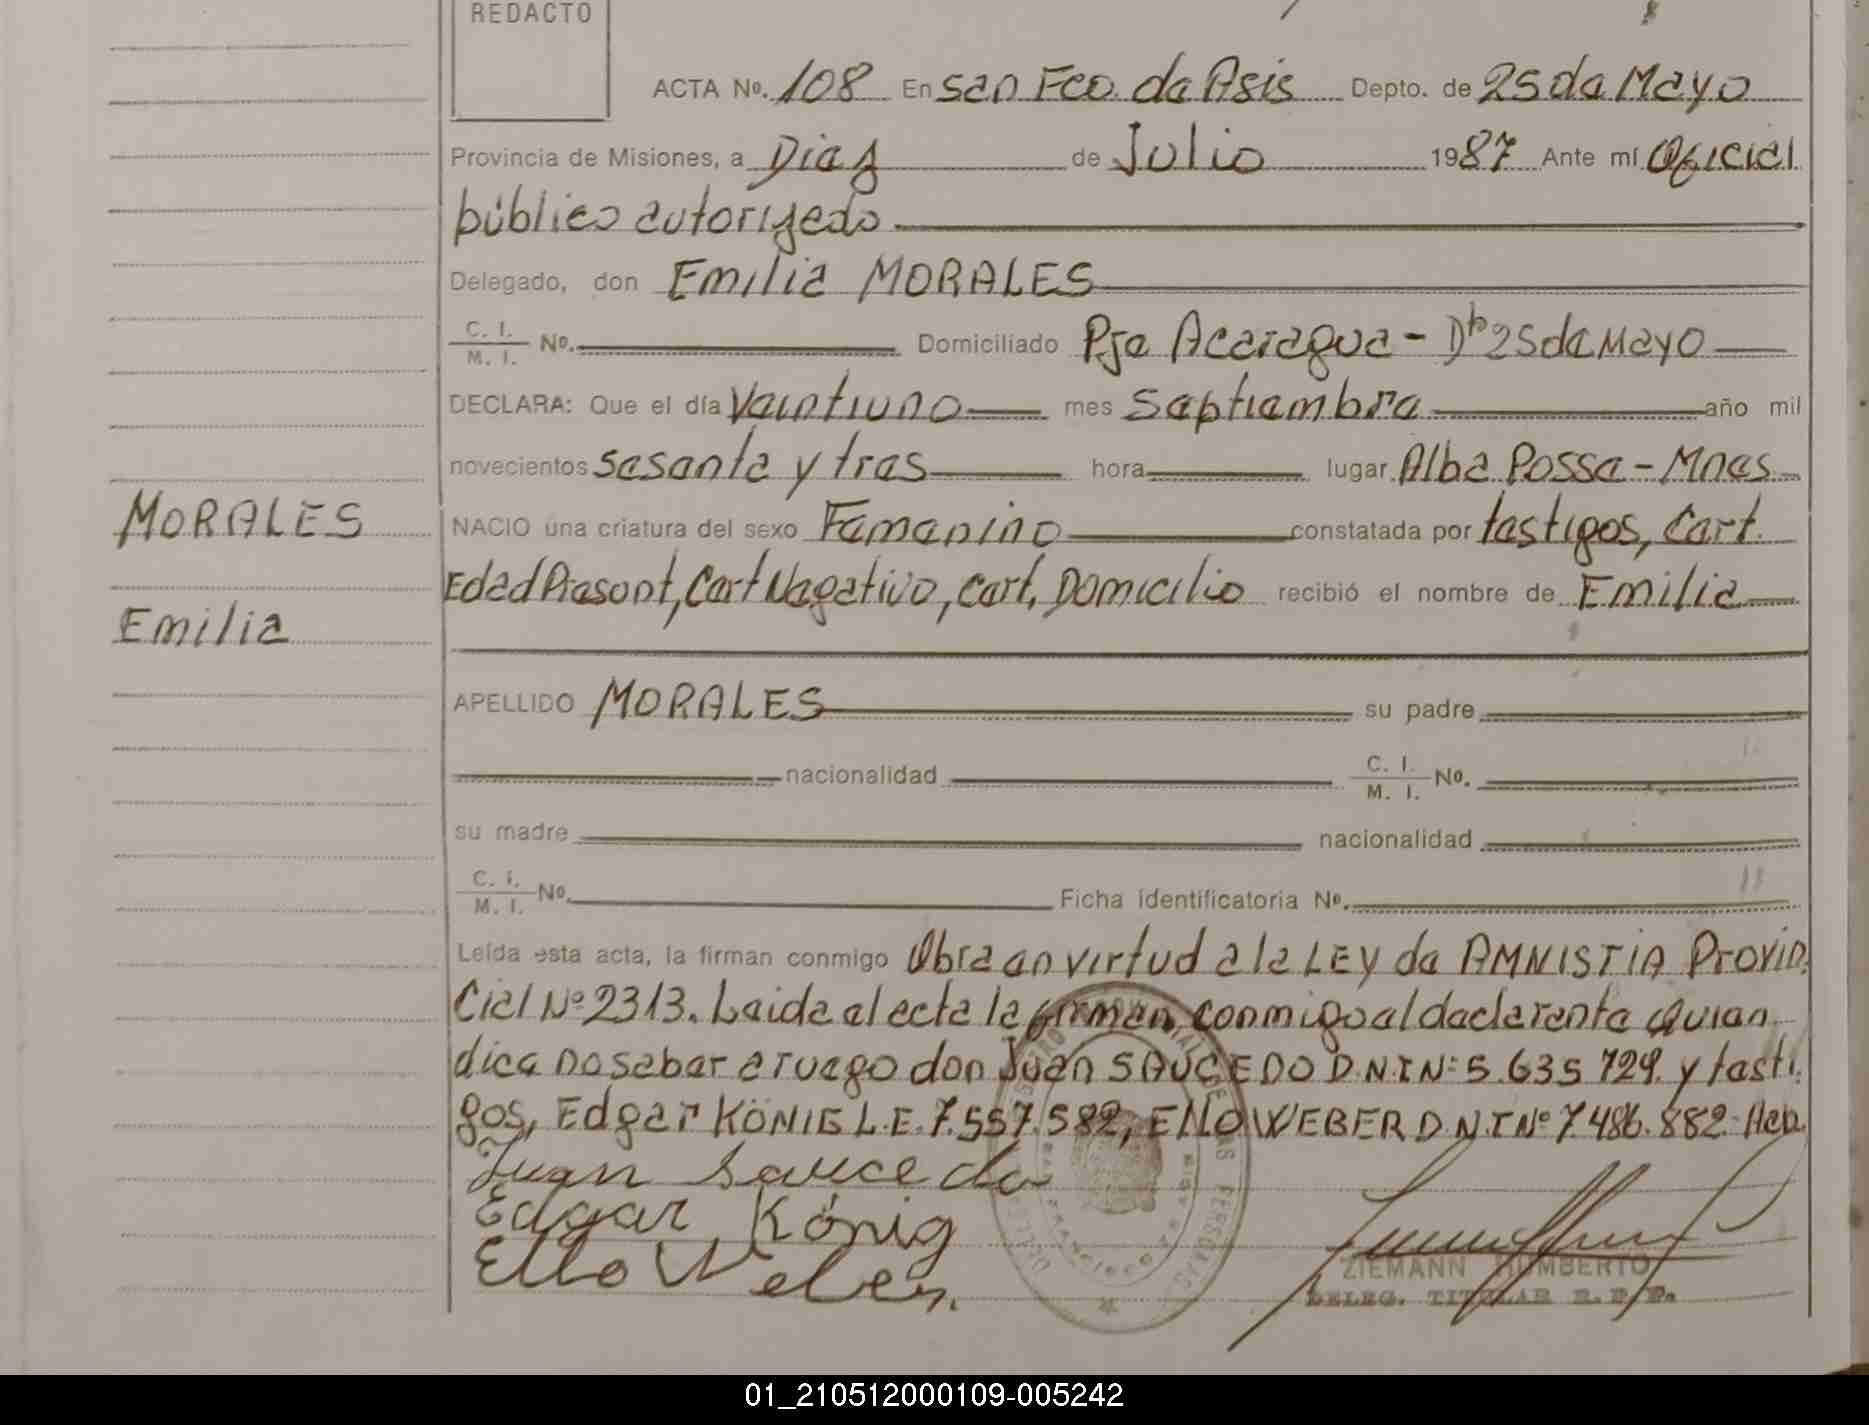 REDACTO
ACTA Nº. 108 En San Fco. de Asis Depto. de 25 de Mayo
Provincia de Misiones, a Diez de Julio 1987 Ante mí Oficial
público autorizado
Delegado, don Emilia MORALES
C. I. / M. I. Nº. Domiciliado Pje Acaragua - Dto 25 de Mayo
DECLARA: Que el día Veintiuno mes Septiembre año mil
novecientos sesenta y tres hora lugar Alba Posse - Mnes
MORALES
NACIO una criatura del sexo Femenino constatada por testigos, Cert.
Edad Presont, Cert Negativo, Cert. Domicilio recibió el nombre de Emilia
Emilia
APELLIDO MORALES su padre
nacionalidad C. I. / M. I. Nº.
su madre nacionalidad
C. I. / M. I. Nº. Ficha identificatoria Nº.
Leída esta acta, la firman conmigo Obra en virtud a la LEY de AMNISTIA Provin
cial Nº 2313. Leida el acta la firman conmigo el declarente quien
dice no saber a ruego don Juan SAUCEDO D.N.I Nº 5.635.729. y testi
gos, Edgar KÖNIG L.E. 7.557.582, EllO WEBER D.N.I Nº 7.486.882.
Juan Saucedo
Edgar König
Ello Weber.
ZIEMANN HUMBERTO
DELEG. TITULAR R. P. P.
01_210512000109-005242